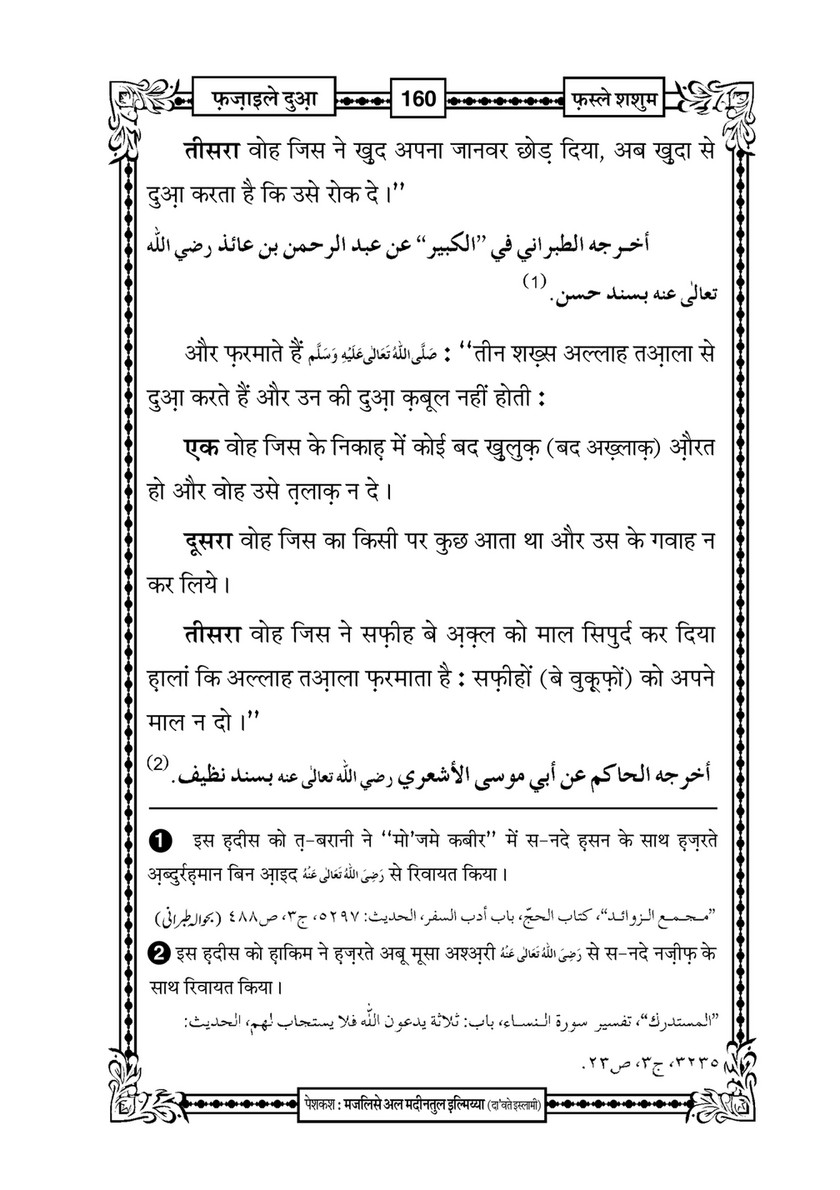 फ़ज़ाइले दुआ़
160
फ़स्ले शशुम
तीसरा वोह जिस ने खुद अपना जानवर छोड़ दिया, अब खुदा से
दुआ़ करता है कि उसे रोक दे ।’’
أخرجه الطبراني في ”الكبير“ عن عبد الرحمن بن عائذ رضي الله
تعالٰى عنه بسند حسن. (1)
और फ़रमाते हैं صَلَّى اللهُ تَعَالٰى عَلَيْهِ وَسَلَّم : ‘‘तीन शख़्स अल्लाह तआ़ला से
दुआ़ करते हैं और उन की दुआ़ क़बूल नहीं होती :
एक वोह जिस के निकाह़ में कोई बद खुलुक़ (बद अख़्लाक़) औ़रत
हो और वोह उसे त़लाक़ न दे ।
दूसरा वोह जिस का किसी पर कुछ आता था और उस के गवाह न
कर लिये ।
तीसरा वोह जिस ने सफ़ीह बे अ़क़्ल को माल सिपुर्द कर दिया
ह़ालां कि अल्लाह तआ़ला फ़रमाता है : सफ़ीहों (बे वुक़ूफ़ों) को अपने
माल न दो ।’’
أخرجه الحاكم عن أبي موسى الأشعري رضي الله تعالٰى عنه بسند نظيف. (2)
❶ इस ह़दीस को त़-बरानी ने ‘‘मो’जमे कबीर’’ में स-नदे ह़सन के साथ ह़ज़रते
अ़ब्दुर्रह़मान बिन आ़इद رَضِىَ اللهُ تَعَالٰى عَنْهُ से रिवायत किया ।
”مجمع الزوائد“، كتاب الحجّ، باب أدب السفر، الحديث: ٥٢٩٧، ج٣، ص٤٨٨ (بحوالہ طبرانی)
❷ इस ह़दीस को ह़ाकिम ने ह़ज़रते अबू मूसा अश्अ़री رَضِىَ اللهُ تَعَالٰى عَنْهُ से स-नदे नज़ीफ़ के
साथ रिवायत किया ।
”المستدرك“، تفسير سورة النساء، باب: ثلاثة يدعون الله فلا يستجاب لهم، الحديث:
٣٢٣٥، ج٣، ص٢٣.
पेशकश : मजलिसे अल मदीनतुल इ़ल्मिय्या (दा'वते इस्लामी)